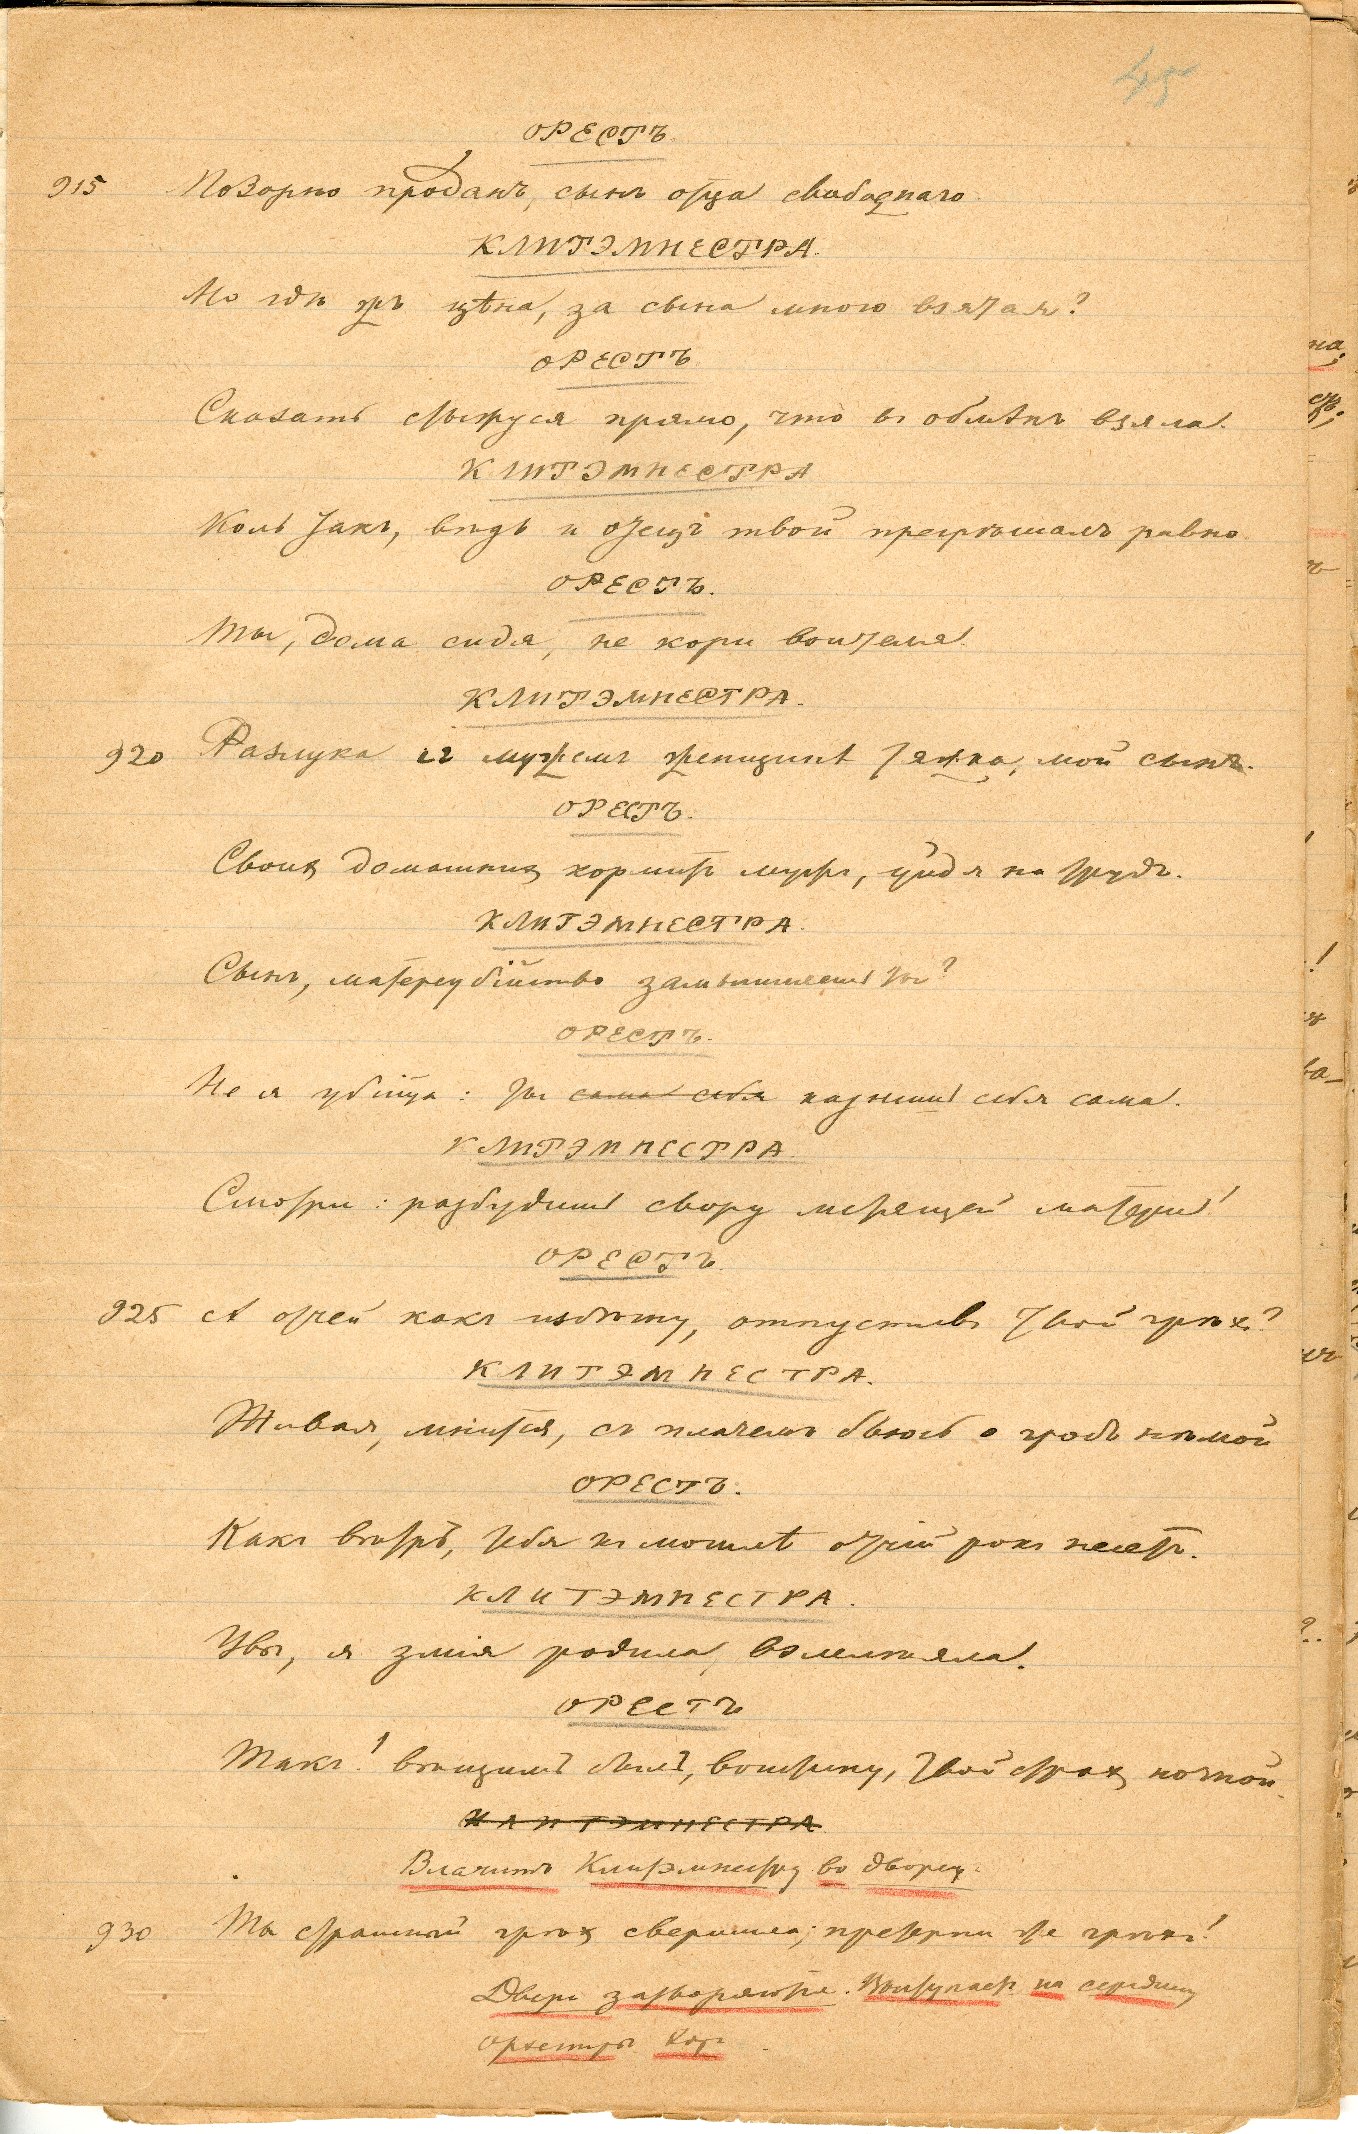 45
ОРЕСТЪ
915 Позорно проданъ, сынъ отца свободнаго.
КЛИТЭМНЕСТРА.
Но гдѣ жъ цѣна, за сына мною взятая?
ОРЕСТЪ
Сказать стыжуся прямо, что въ обмѣнъ взяла.
КЛИТЭМНЕСТРА
Коль такъ, вѣдь и отецъ твой прегрѣшалъ равно
ОРЕСТЪ.
Ты, дома сидя, не кори воителя.
КЛИТЭМНЕСТРА.
920 Разлука съ мужемъ женщинѣ тяжка, мой сынъ.
ОРЕСТЪ.
Своихъ домашнихъ кормитъ мужъ, уйдя на трудъ.
КЛИТЭМНЕСТРА.
Сынъ, матереубійство замышляешь ты?
ОРЕСТЪ.
Не я убійца: ты сама себя казнишь себя сама.
КЛИТЭМНЕСТРА
Смотри: разбудишь свору мстящей матери!
ОРЕСТЪ.
925 А отчей какъ избѣгну, отпустивъ твой грѣхъ?
КЛИТЭМНЕСТРА.
Живая, мнится, съ плачемъ бьюсь о гробъ нѣмой
ОРЕСТЪ.
Какъ вѣтръ, тебя къ могилѣ отчій рокъ несетъ.
КЛИТЭМНЕСТРА.
Увы, я змія родила, взлелѣяла.
ОРЕСТЪ
Такъ! вѣщимъ былъ, воистину, твой страхъ ночной.
КЛИТЭМНЕСТРА
Влачитъ Клитэмнестру во дворецъ.
930 Ты страшный грѣхъ свершила; претерпи же грѣхъ!
Двери затворяются. Выступаетъ на середину
орхестры Хоръ.